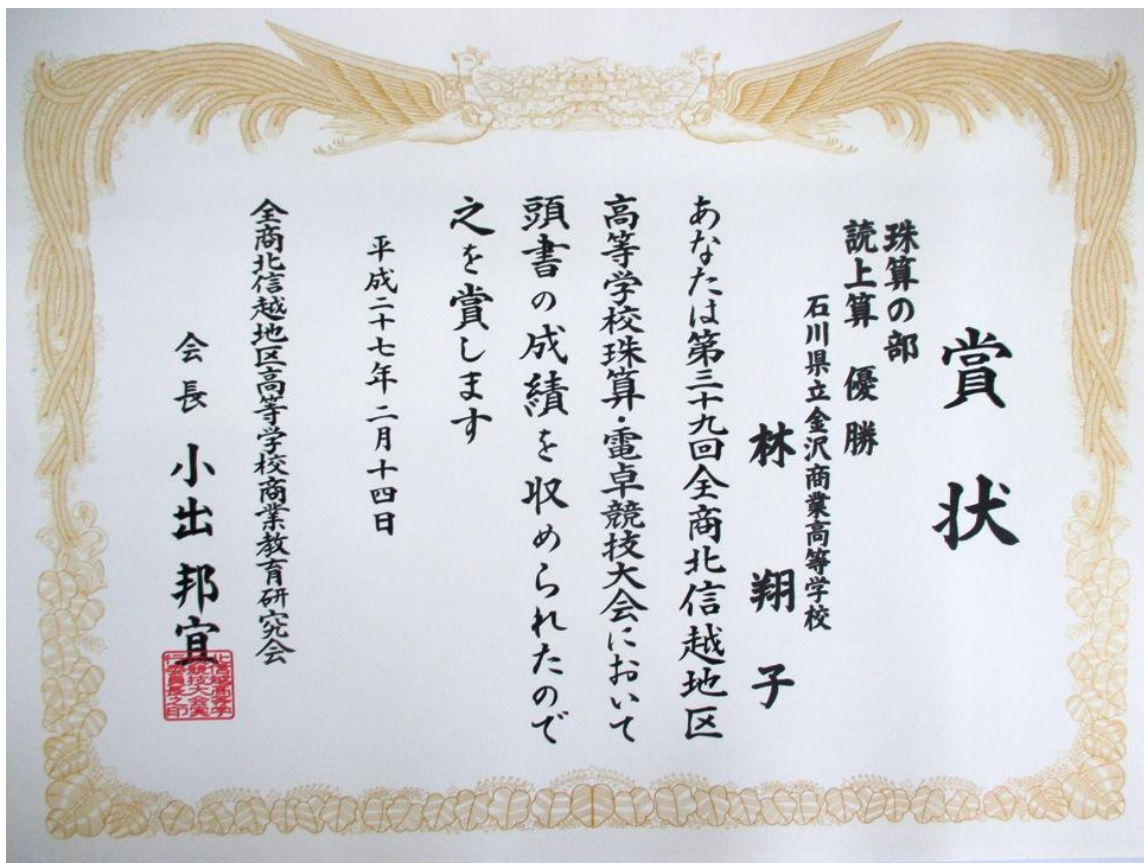 賞状
珠算の部
読上算 優勝
石川県立金沢商業高等学校
林 翔子
あなたは第三十九回全商北信越地区
高等学校珠算・電卓競技大会において
頭書の成績を収められたので
之を賞します
平成二十七年二月十四日
全商北信越地区高等学校商業教育研究会
会長 小出 邦宜